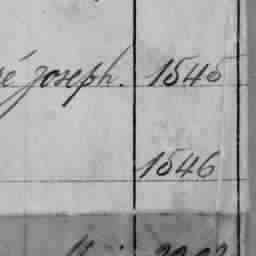 é joseph. 1545
1546